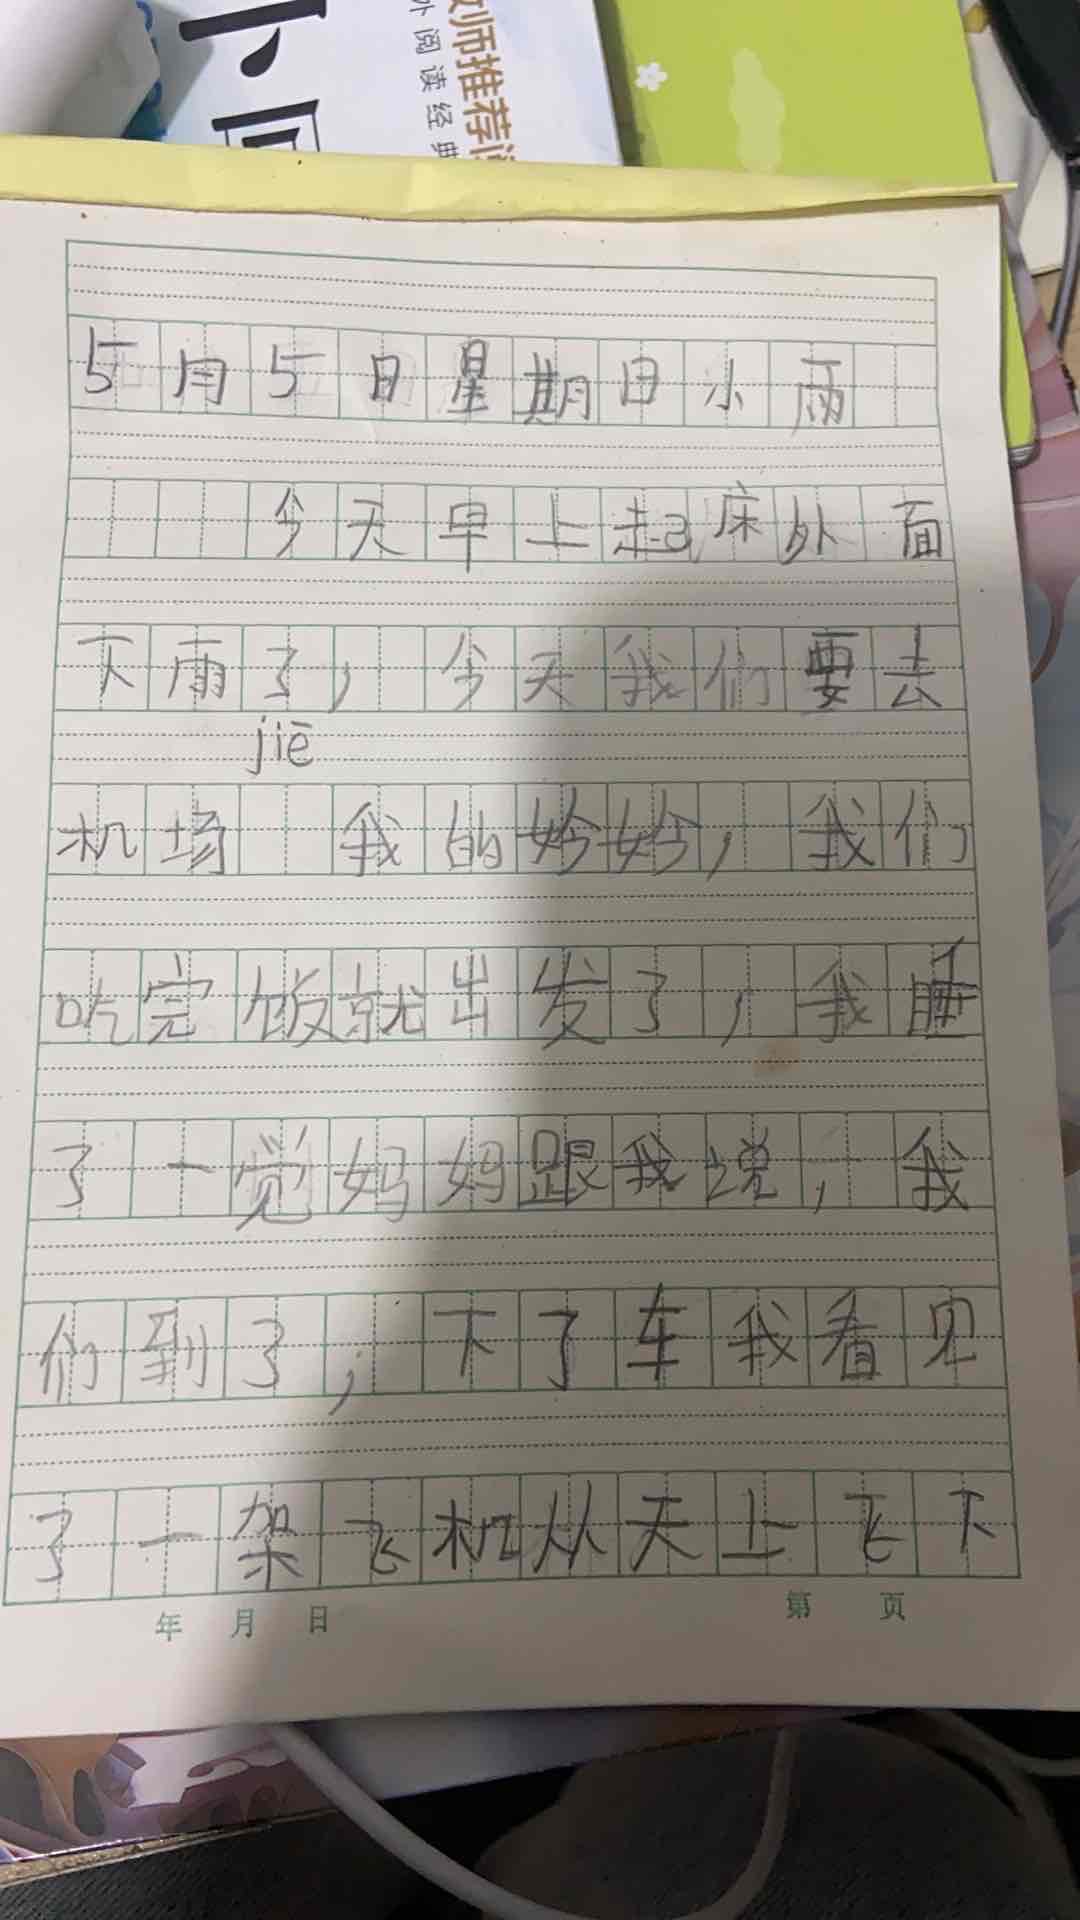 教师推荐阅
外阅读经典
5月5日星期日小雨
今天早上起床外面
下雨了，今天我们要去
jiē
机场 我的妗妗，我们
吃完饭就出发了，我睡
了一觉妈妈跟我说，我
们到了，下了车我看见
了一架飞机从天上飞下
年 月 日 第 页